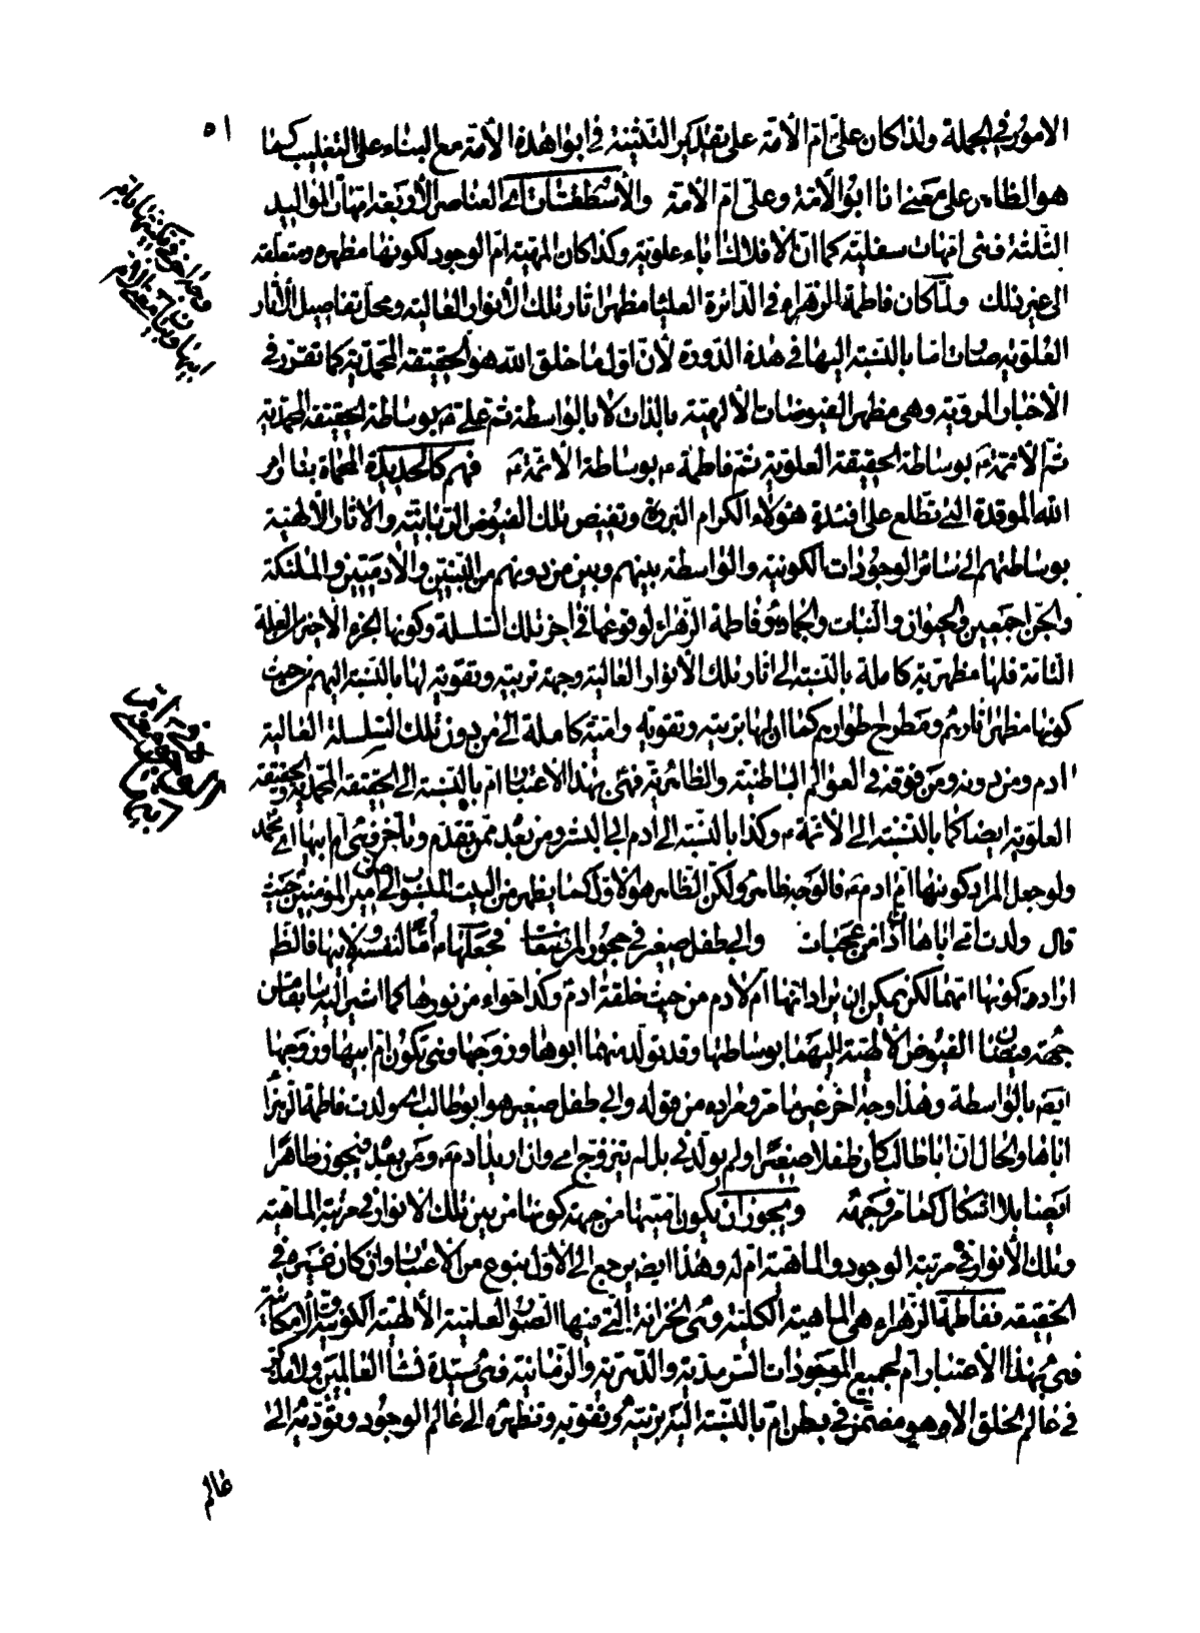 ٥١
الامور في الجملة ولذا كان علي ام الأمة على تقدير التثنية في ابوا هذه الأمة مع البناء على التغليب كما
هو الظاهر على معنى انا ابو الأمة وعلي ام الأمة والأسطقسات اي العناصر الأربعة امهات المواليد
الثلثة فهي امهات سفلية كما ان الافلاك اباء علوية وكذا كان المهية ام الوجود لكونها مظهره ومتعلقه
الى غير ذلك ولما كان فاطمة الزهراء في الدائرة العليا مظهر اثار تلك الأنوار العالية ومحل تفاصيل الأثار
العلوية صارت اما بالنسبة اليها في هذه الدورة لأن اول ما خلق الله هو الحقيقة المحمدية كما تقرر في
الأخبار المروية وهي مظهر الفيوضات الألهية بالذات لا بالواسطة ثم علي ع بوساطة الحقيقة المحمدية
ثم الأئمة ع بوساطة الحقيقة العلوية ثم فاطمة ع بوساطة الأئمة ع فهم كالحديدة المحماة بنار امر
الله الموقدة التي تطلع على افئدة هؤلاء الكرام البررة وتفيض تلك الفيوض الربانية والاثار الألهية
بوساطتهم الى سائر الوجودات الكونية والواسطة بينهم وبين من دونهم من النبيين والأدميين والملئكة
والجن اجمعين والحيوان والنبات والجماد هو فاطمة الزهراء لوقوعها في اخر تلك السلسلة وكونها الجزء الأخير للعلة
التامة فلها مظهرية كاملة بالنسبة الى اثار تلك الأنوار العالية وجهة تربية وتقوية لها بالنسبة اليهم من حيث
كونها مظهر اثارهم ومطرح اطوارهم كما ان لها تربية وتقوية وامية كاملة الى من دون تلك السلسلة العالية
ادم ومن دونه ومن فوقه في العوالم الباطنية والظاهرية فهي بهذا الاعتبار ام بالنسبة الى الحقيقة المحمدية والحقيقة
العلوية ايضا كما بالنسبة الى الأئمة ع وكذا بالنسبة الى ادم ابي البشر ومن بعده ممن تقدم وتأخر فهي ام ابيها اي محمد
ولو جعل المراد كونها ام ادم ع فالوجه ظاهر ولكن الظاهر هو الاول كما يظهر من البيت المنسوب الى امير المؤمنين حيث
قال ولدت امي اباها ان ذا من عجبات وابي طفل صغير في حجور المرضعات فجعلها ع اما لنفسه ولأبيها فالظ
اراده كونها امهما لكن يمكن ان يراد انها ام لادم من حيث خلقة ادم وكذا حواء من نورها كما اشير اليه سابقا من
جهة فيضان الفيوض الألهية اليهما بوساطتها وقد تولد منهما ابوها وزوجها فهي تكون ام ابيها وزوجها
ايضا بالواسطة وهذا وجه اخر غير ما مر ومراده من قوله وابي طفل صغير هو ابوطالب اي ولدت فاطمة الزهرا
اباها والحال ان اباطالب كان طفلا صغيرا ولم يولدني بل لم يتزوج امي وان اريد ادم ع ومن بعده فيجوز ظاهرا
ايضا بلا اشكال كما مر وجهه ويجوز ان يكون اميتها من جهة كونها من بين تلك الانوار في مرتبة الماهية
وتلك الأنوار في مرتبة الوجود والماهية ام له وهذا ايضا يرجع الى الأول بنوع من الاعتبار وان كان غيره في
الحقيقة ففاطمة الزهراء هي الماهية الكلية وهي الخزانة التي فيها الصور العلمية الألهية الكونية والامكانية
فهي بهذا الأعتبار ام لجميع الموجودات السرمدية والدهرية والزمانية فهي سيدة نساء العالمين
في عالم الخلق الامر هو مضمر في بطن ام بالنسبة اليه تربيه وتقويه وتظهره الى عالم الوجود وتؤديه الى
عالم